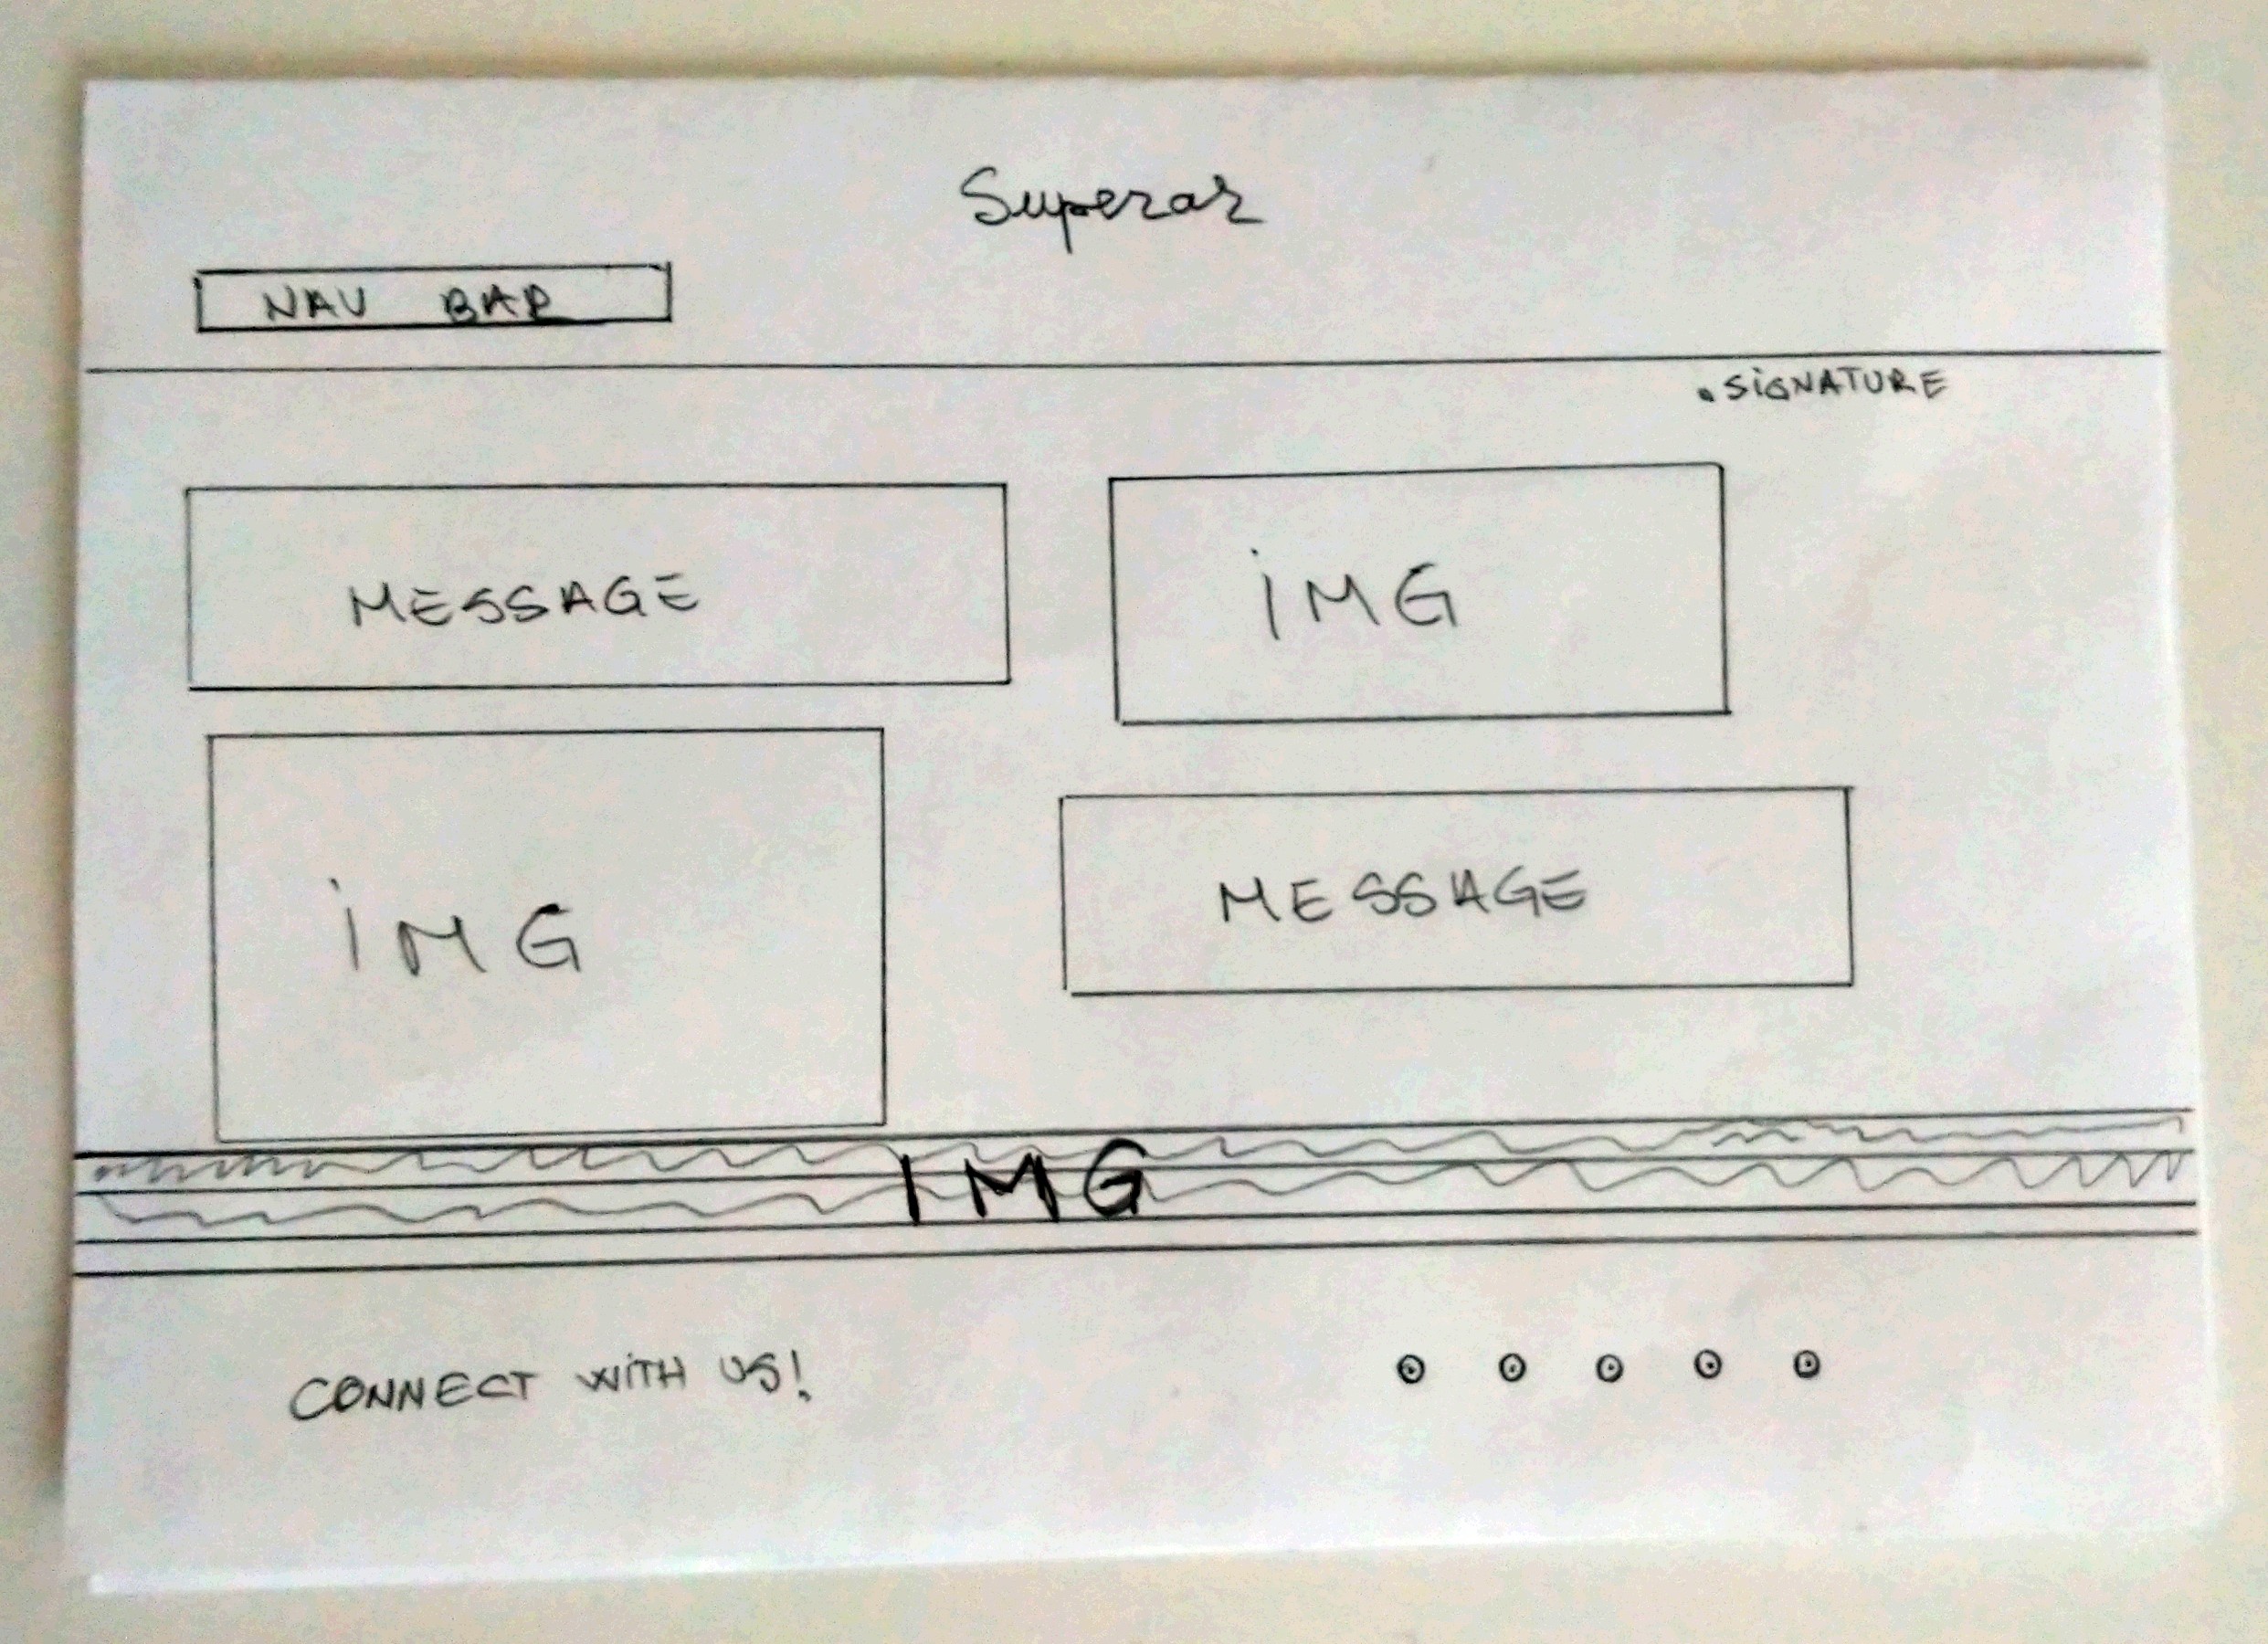 Superar
NAV BAR
.SIGNATURE
MESSAGE
IMG
IMG
MESSAGE
IMG
CONNECT WITH US!